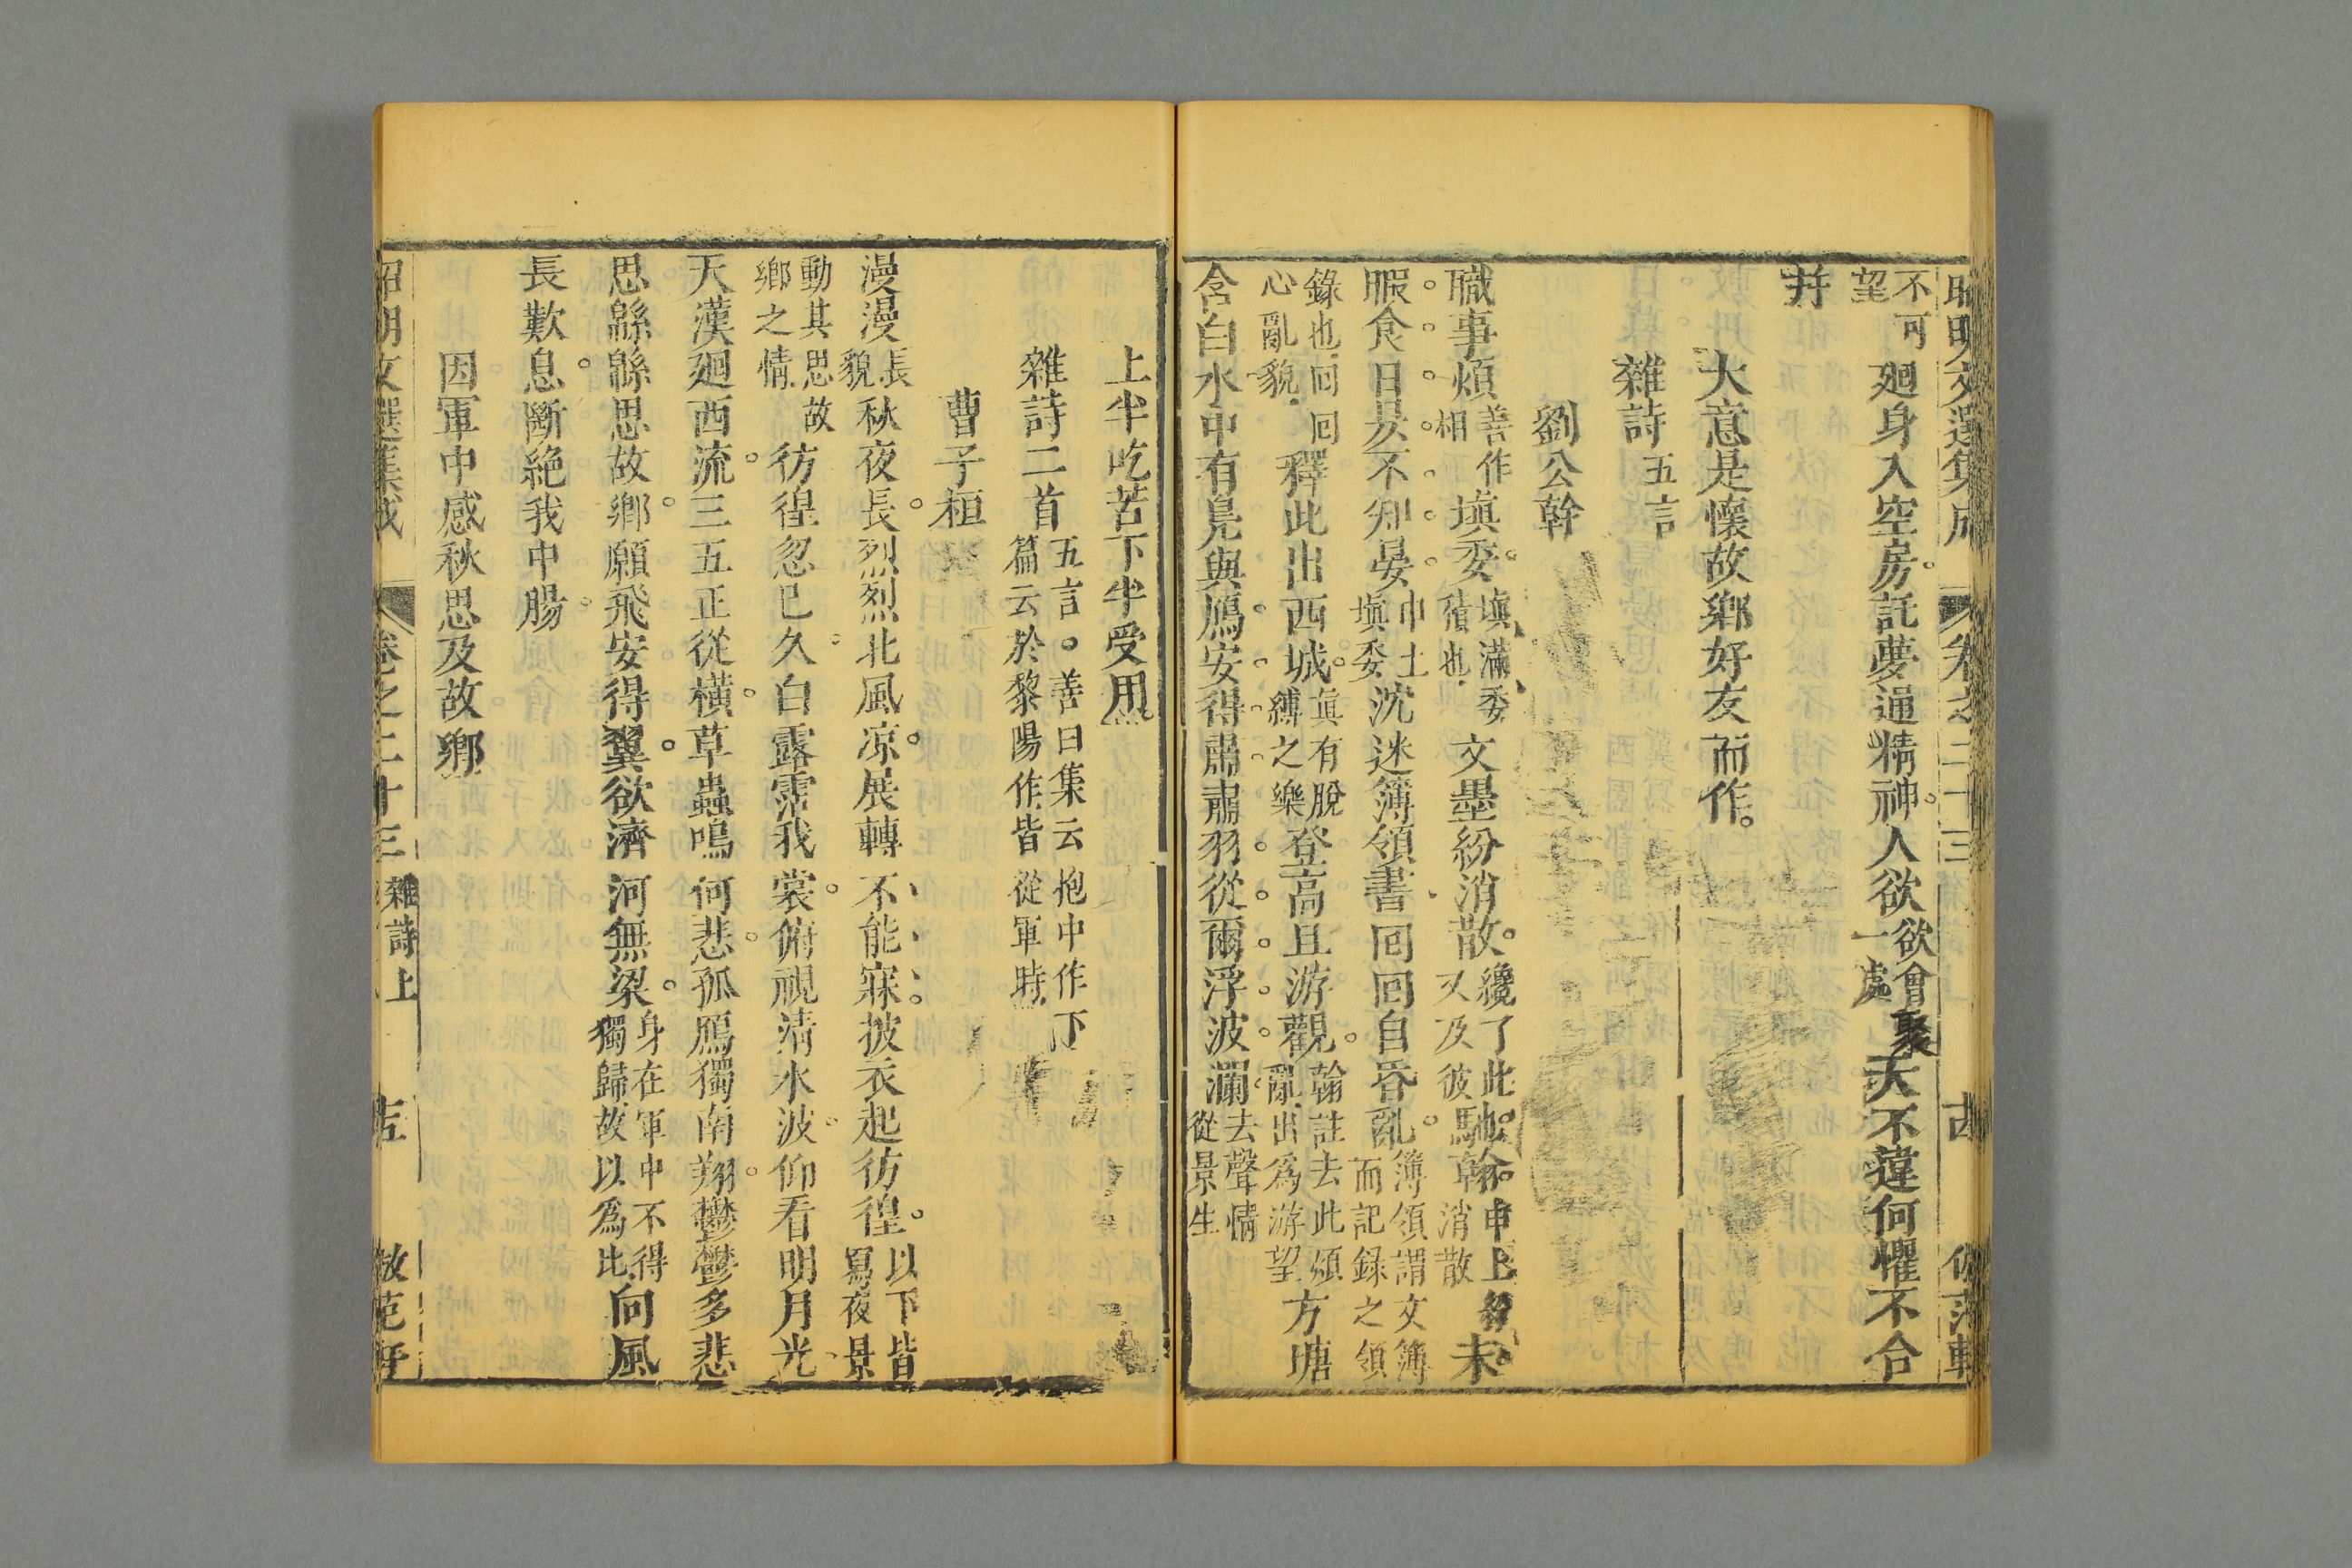 昭明文選集成 卷之二十三
不可望廻身入空房託夢通精神人欲欲會聚一處天不違何懼不合
并
大意是懷故鄉好友而作
雜詩五言
劉公幹
職事煩善作相填委填滿委積也文墨紛消散纔了此又及彼馳翰消散未
暇食日昃不知晏巾土填委沈迷簿領書回回自昏亂簿領謂文簿而記録之領
錄也回回心亂貌釋此出西城真有脫縛之樂登高且游觀翰註去此煩亂出爲游望方塘
含白水中有鳧與鴈安得肅肅羽從爾浮波瀾去聲情從景生
上半吃苦下半受用
雜詩二首五言善曰集云抱中作下篇云於黎陽作皆從軍時
曹子桓
漫漫長貌秋夜長烈烈北風凉展轉不能寐披衣起彷徨以下皆寫夜景
動其思故鄉之情彷徨忽已久白露霑我裳俯視清水波仰看明月光
天漢廻西流三五正從橫草蟲鳴何悲孤鴈獨南翔鬱鬱多悲
思緜緜思故鄉願飛安得翼欲濟河無梁身在軍中不得獨歸故以爲比向風
長歎息斷絶我中腸
因軍中感秋思及故鄉
昭明文選集成 卷之二十三 雜詩上